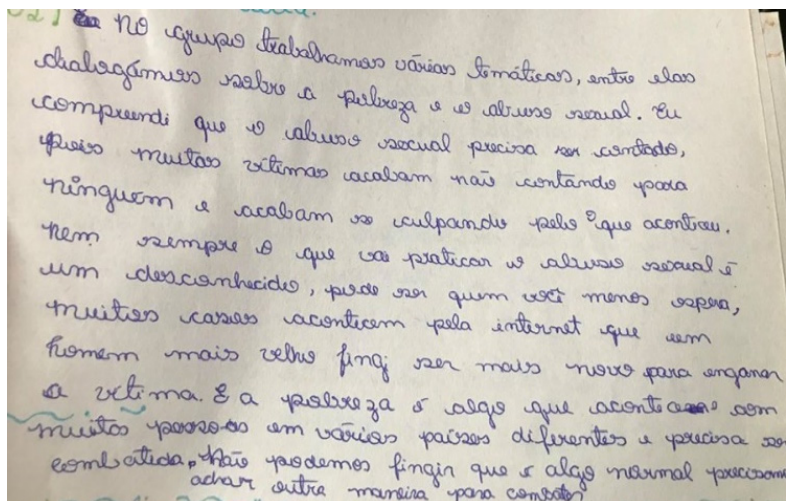 02) No grupo trabalhamos várias temáticas, entre elas
dialogámos sobre a pobreza e o abuso sexual. Eu
compreendi que o abuso sexual precisa ser contado,
pois muitas vítimas acabam não contando para
ninguém e acabam se culpando pelo o que aconteceu.
Nem sempre o que vai praticar o abuso sexual é
um desconhecido, pode ser quem você menos espera,
muitos casos acontecem pela internet que um
homem mais velho fingi ser mais novo para enganar
a vítima. E a pobreza é algo que acontece com
muitas pessoas em vários países diferentes e precisa ser
combatida. Não podemos fingir que é algo normal
achar outra maneira para combater